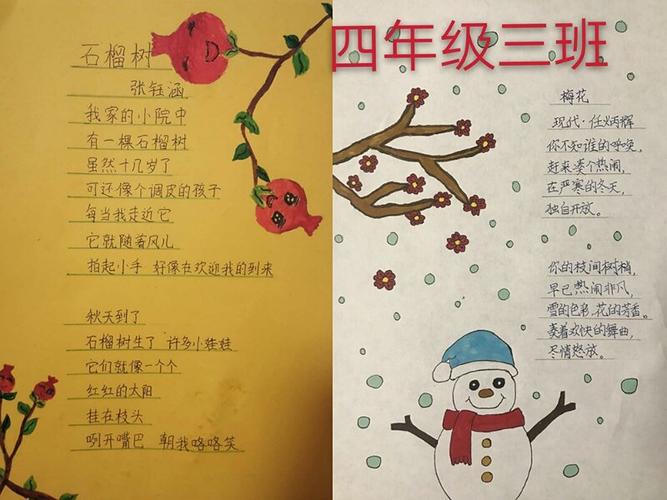 石榴树
张钰涵
我家的小院中
有一棵石榴树
虽然十几岁了
可还像个调皮的孩子
每当我走近它
它就随着风儿
拍起小手 好像在欢迎我的到来
秋天到了
石榴树生了 许多小娃娃
它们就像一个个
红红的太阳
挂在枝头
咧开嘴巴 朝我咯咯笑
四年级三班
梅花
现代·任炳辉
你不知谁的呼唤,
赶来凑个热闹,
在严寒的冬天,
独自开放。
你的枝间树梢,
早已热闹非凡,
雪的色彩,花的芳香。
奏着欢快的舞曲,
尽情怒放。